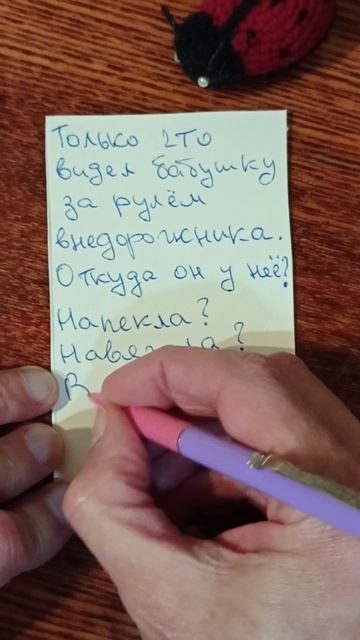 Только что
видел бабушку
за рулём
внедорожника.
Откуда он у неё?
Напекла?
В